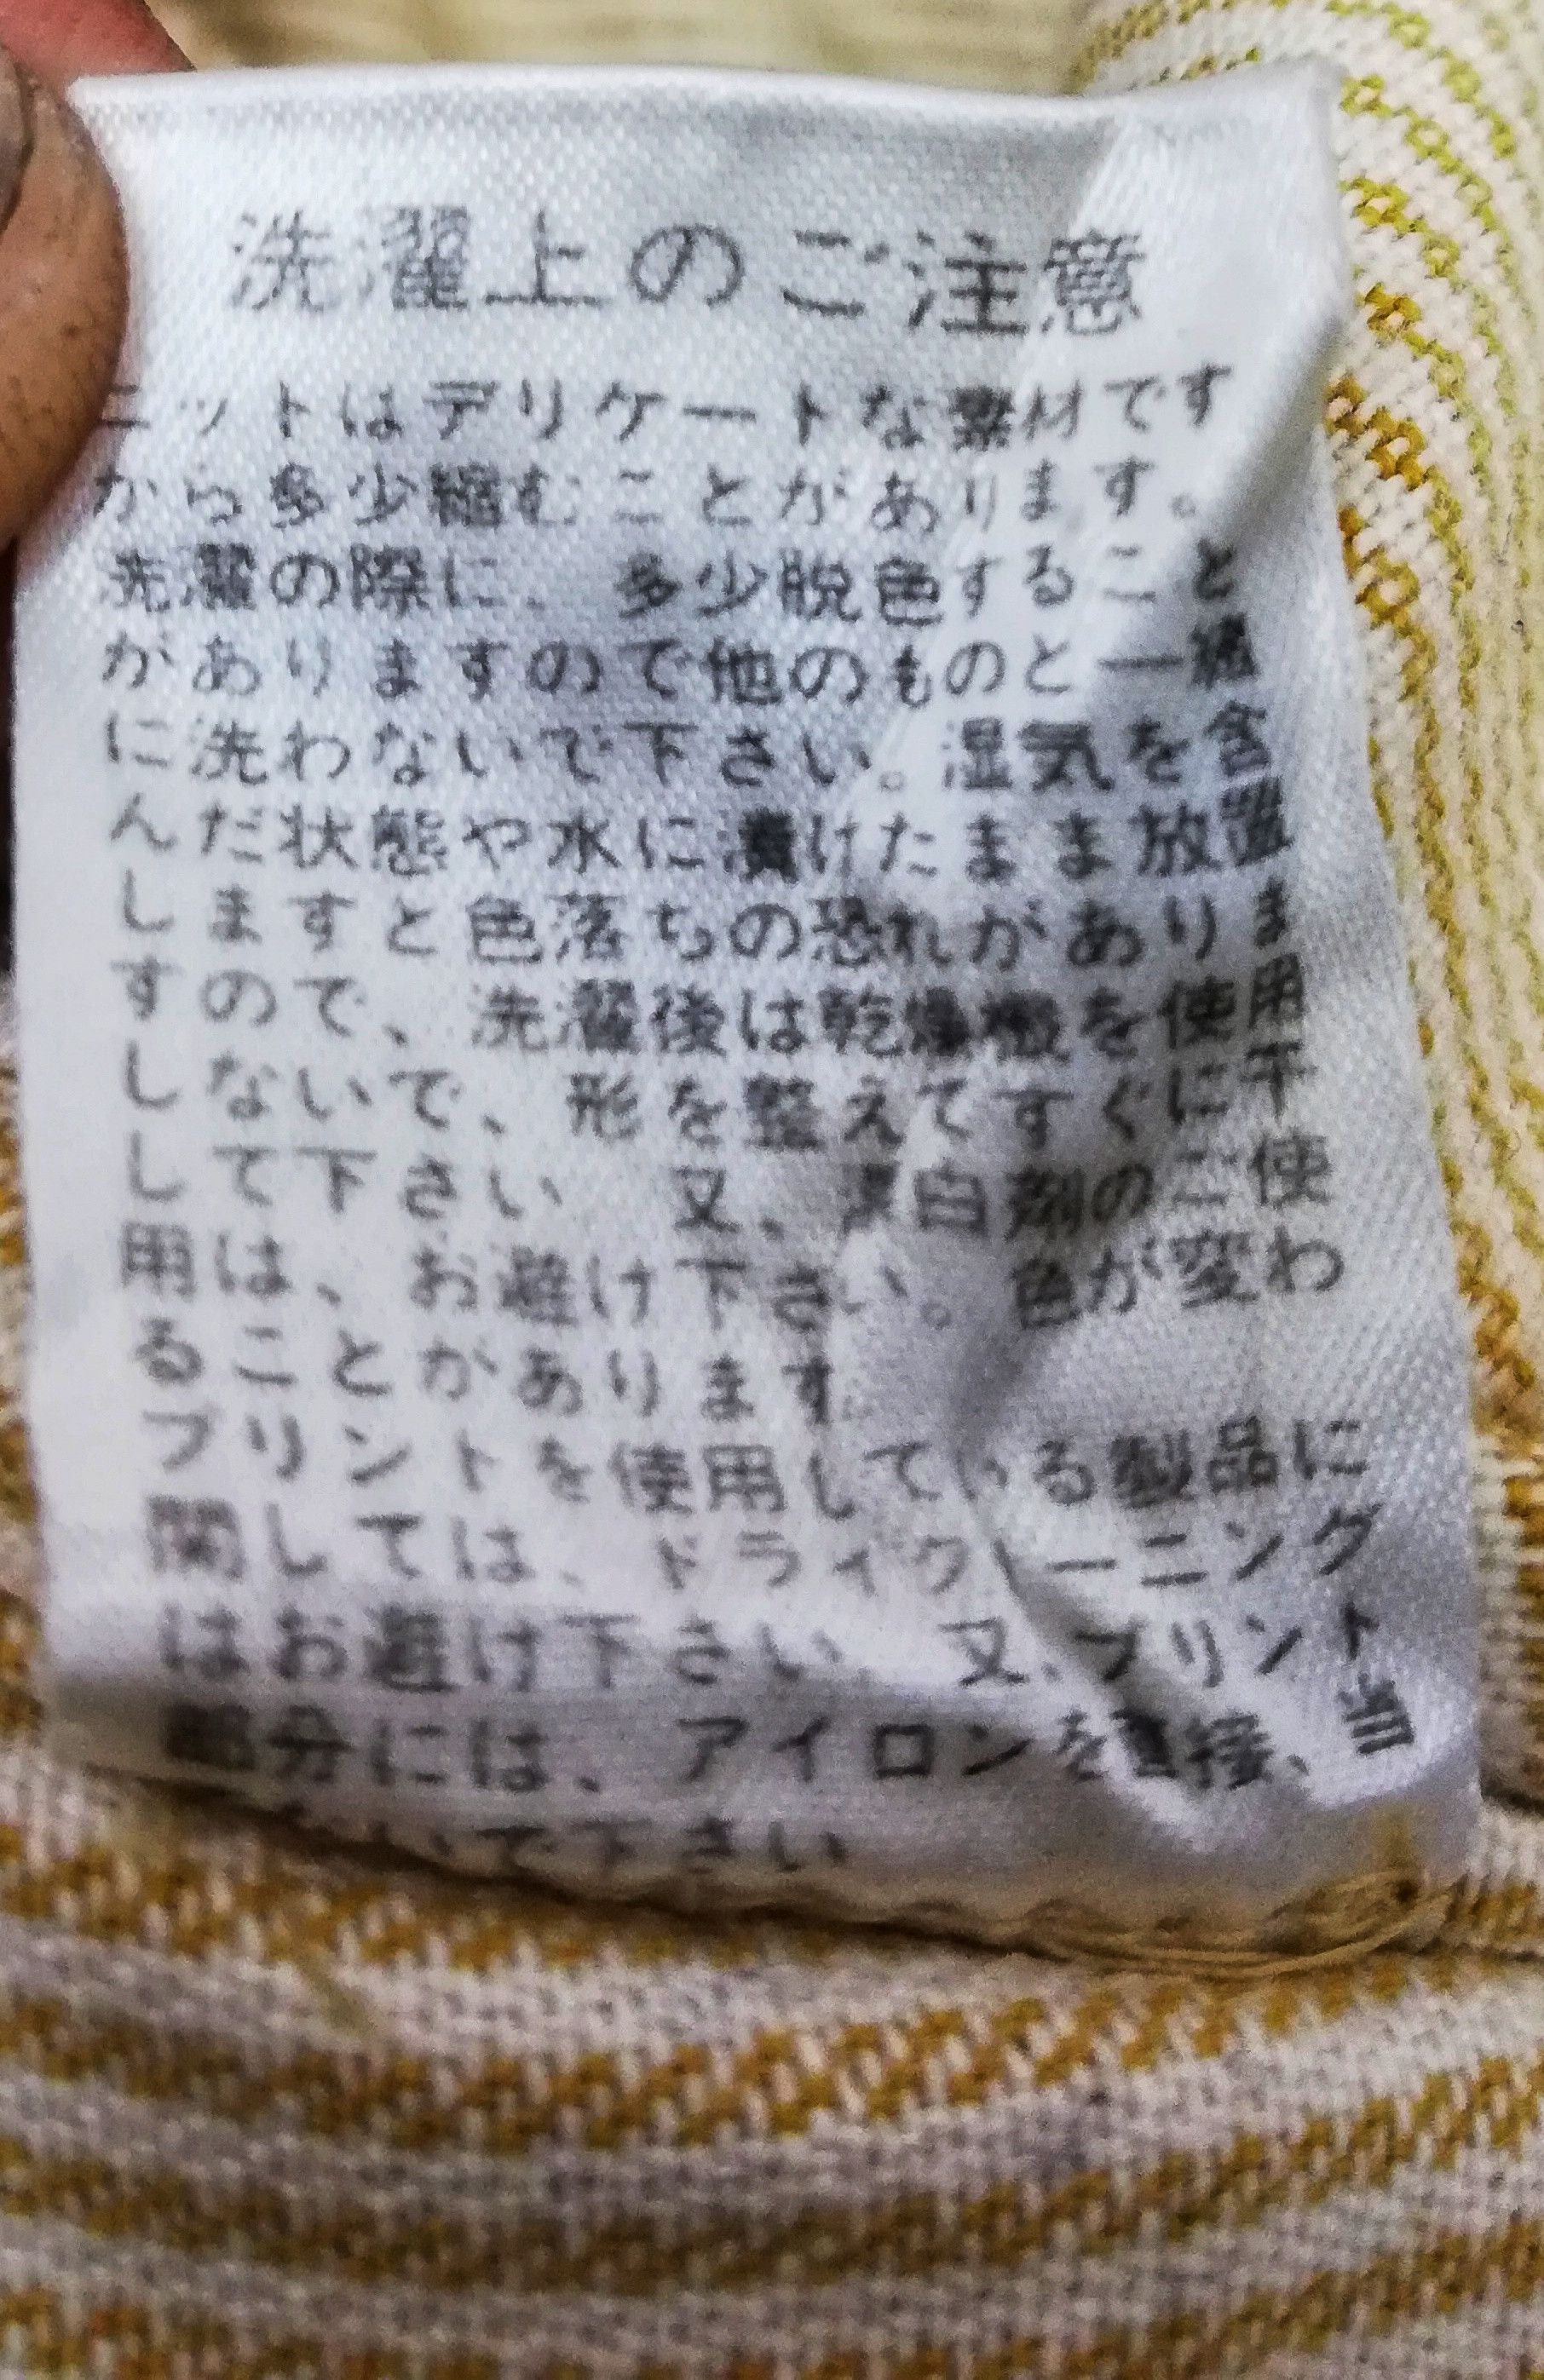 洗濯上のご注意
ニットはデリケートな素材です
から多少縮むことがあります。
洗濯の際に、多少脱色すること
がありますので他のものと一緒
に洗わないで下さい。湿気を含
んだ状態や水に漬けたまま放置
しますと色落ちの恐れがありま
すので、洗濯後は乾燥機を使用
しないで、形を整えてすぐに干
して下さい 又、漂白剤のご使
用は、お避け下さい。色が変わ
ることがあります
プリントを使用している製品に
関しては、ドライクリーニング
はお避け下さい。又、プリント
部分には、アイロンを直接、当
ないで下さい